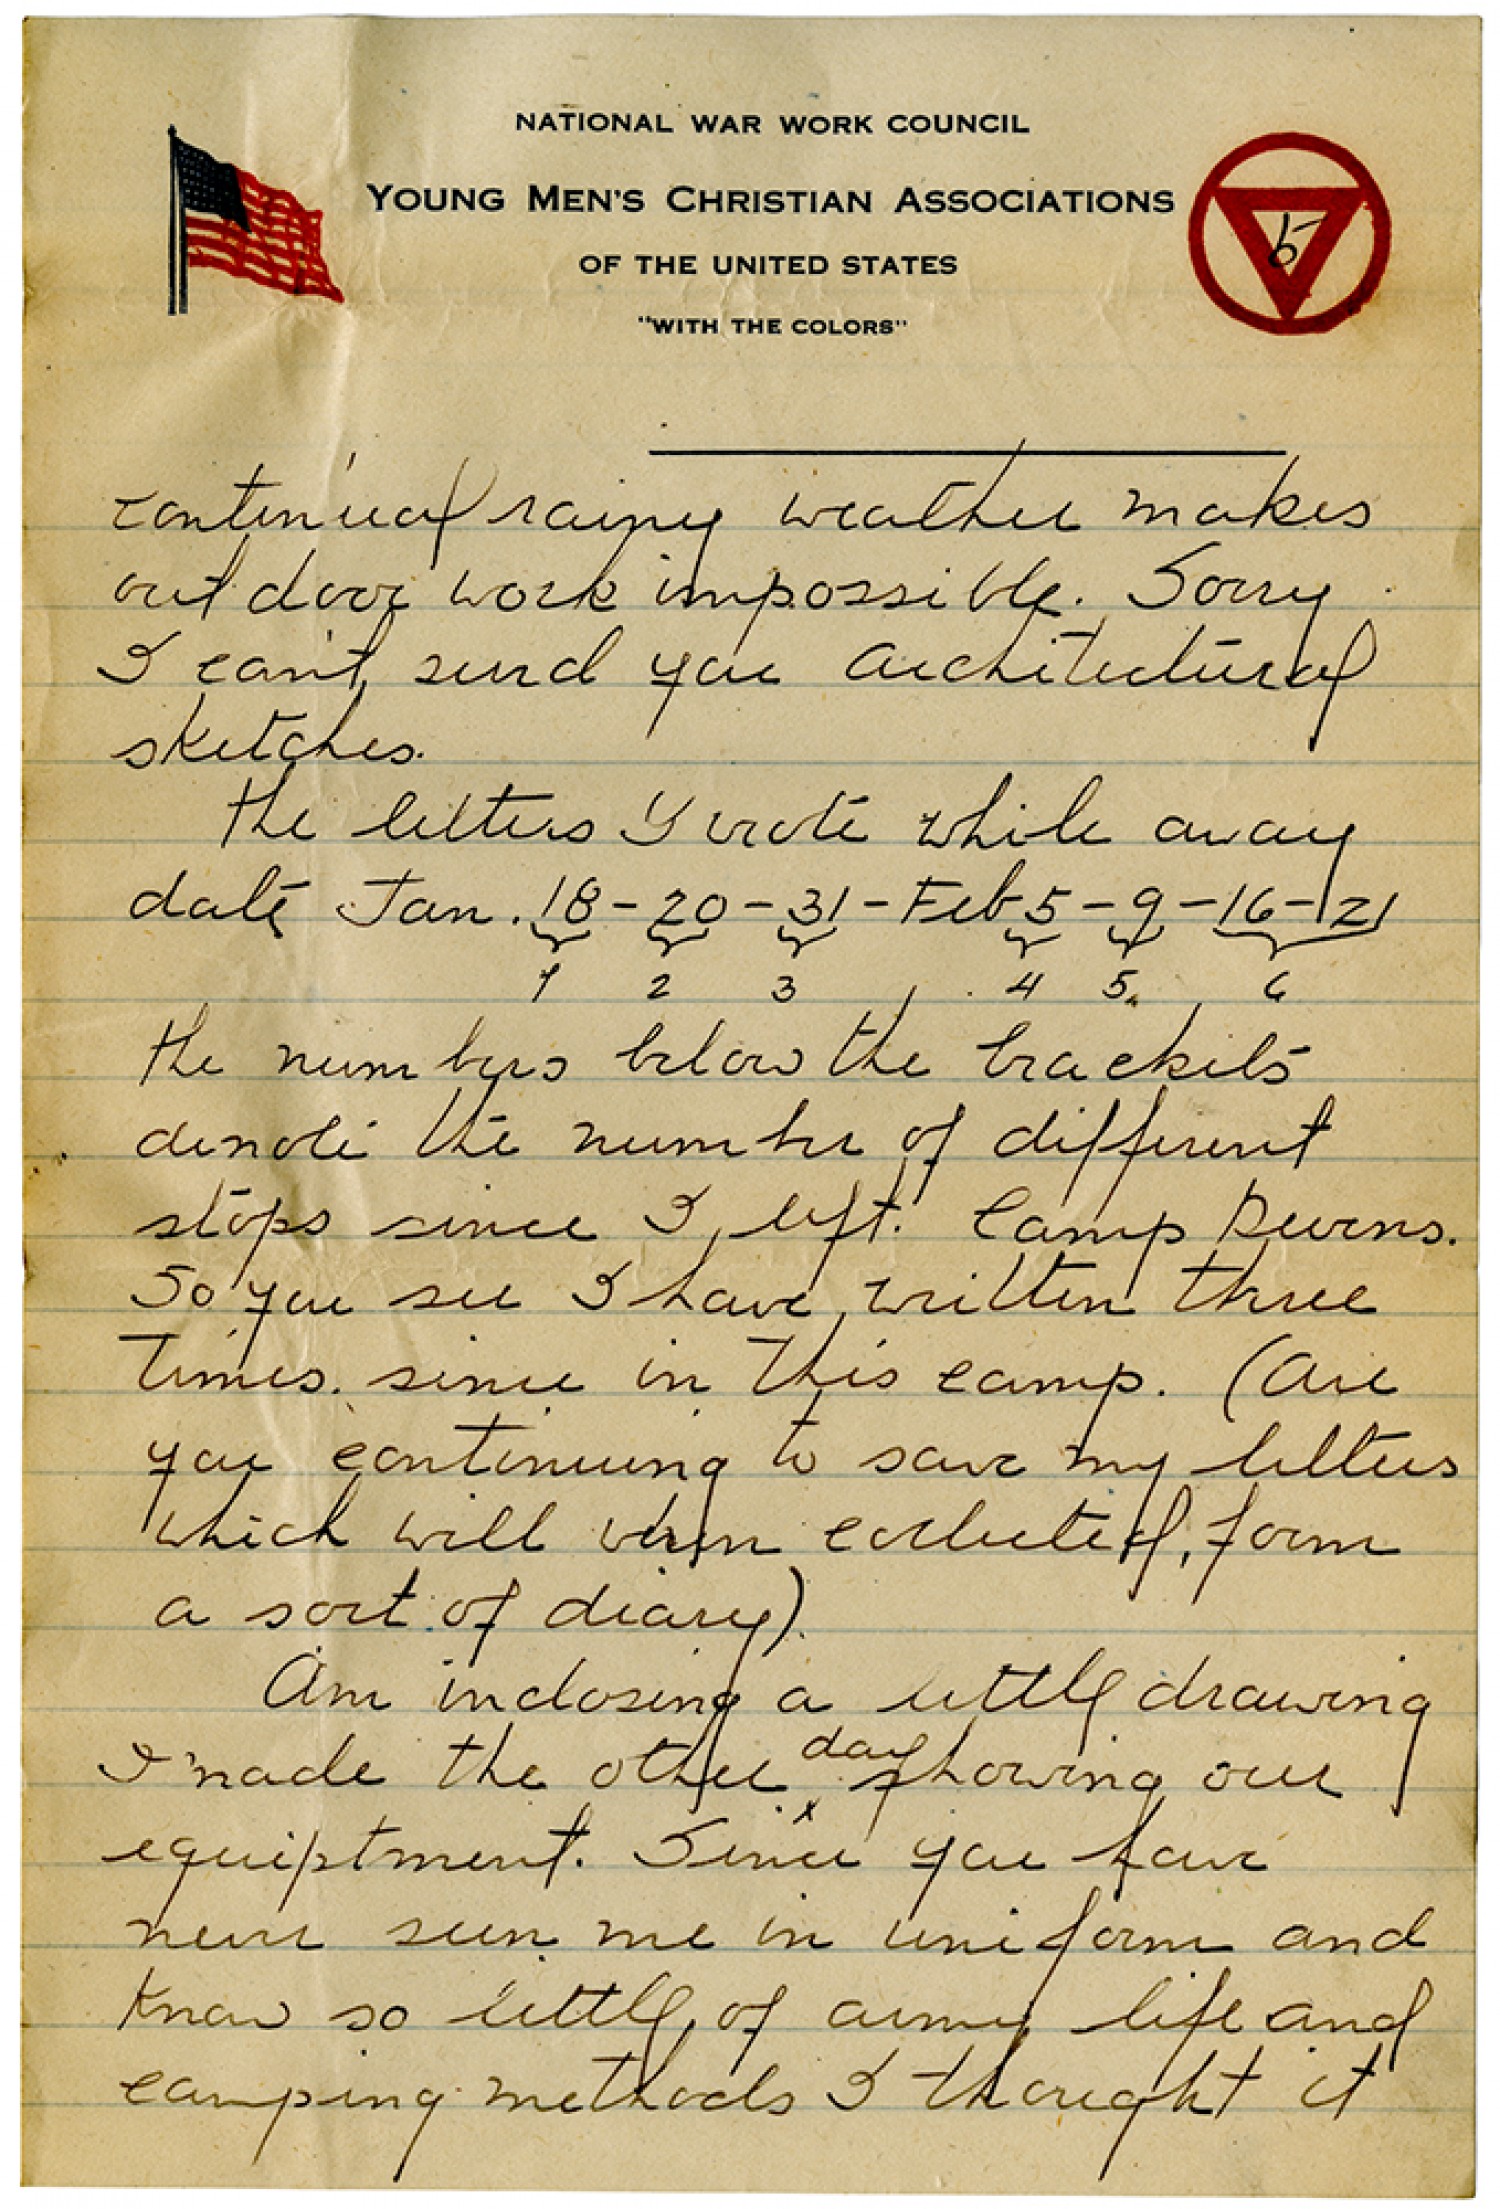 NATIONAL WAR WORK COUNCIL
YOUNG MEN'S CHRISTIAN ASSOCIATIONS
OF THE UNITED STATES
"WITH THE COLORS"
5
continual rainy weather makes
out door work impossible. Sorry
I can't send you architectural
sketches.
The letters I wrote while away
date Jan. 18 - 20 - 31 - Feb 5 - 9 - 16 - 21
1 2 3 4 5 6
The numbers below the brackets
denote the number of different
stops since I left Camp Devens.
So you see I have written three
times since in this camp. (Are
you continuing to save my letters
which will when collected, form
a sort of diary).
Am inclosing a little drawing
I made the other day showing our
equiptment. Since you have
never seen me in uniform and
know so little of army life and
camping methods I thought it